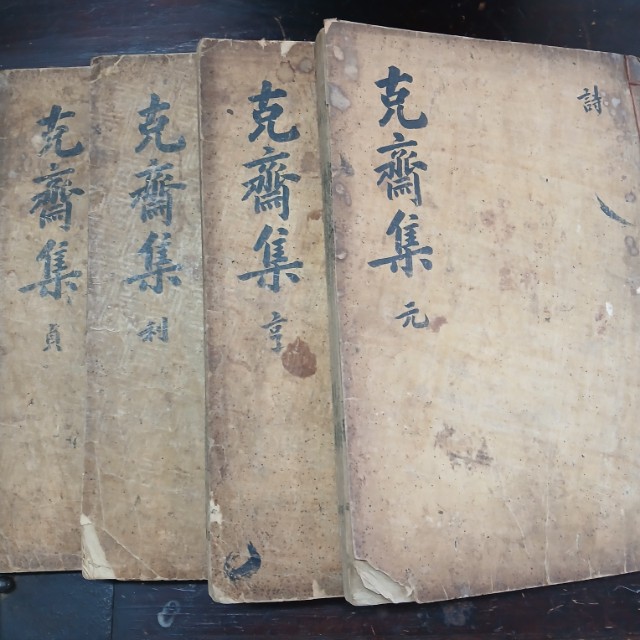 詩
克齋集
元
克齋集
亨
克齋集
利
克齋集
貞